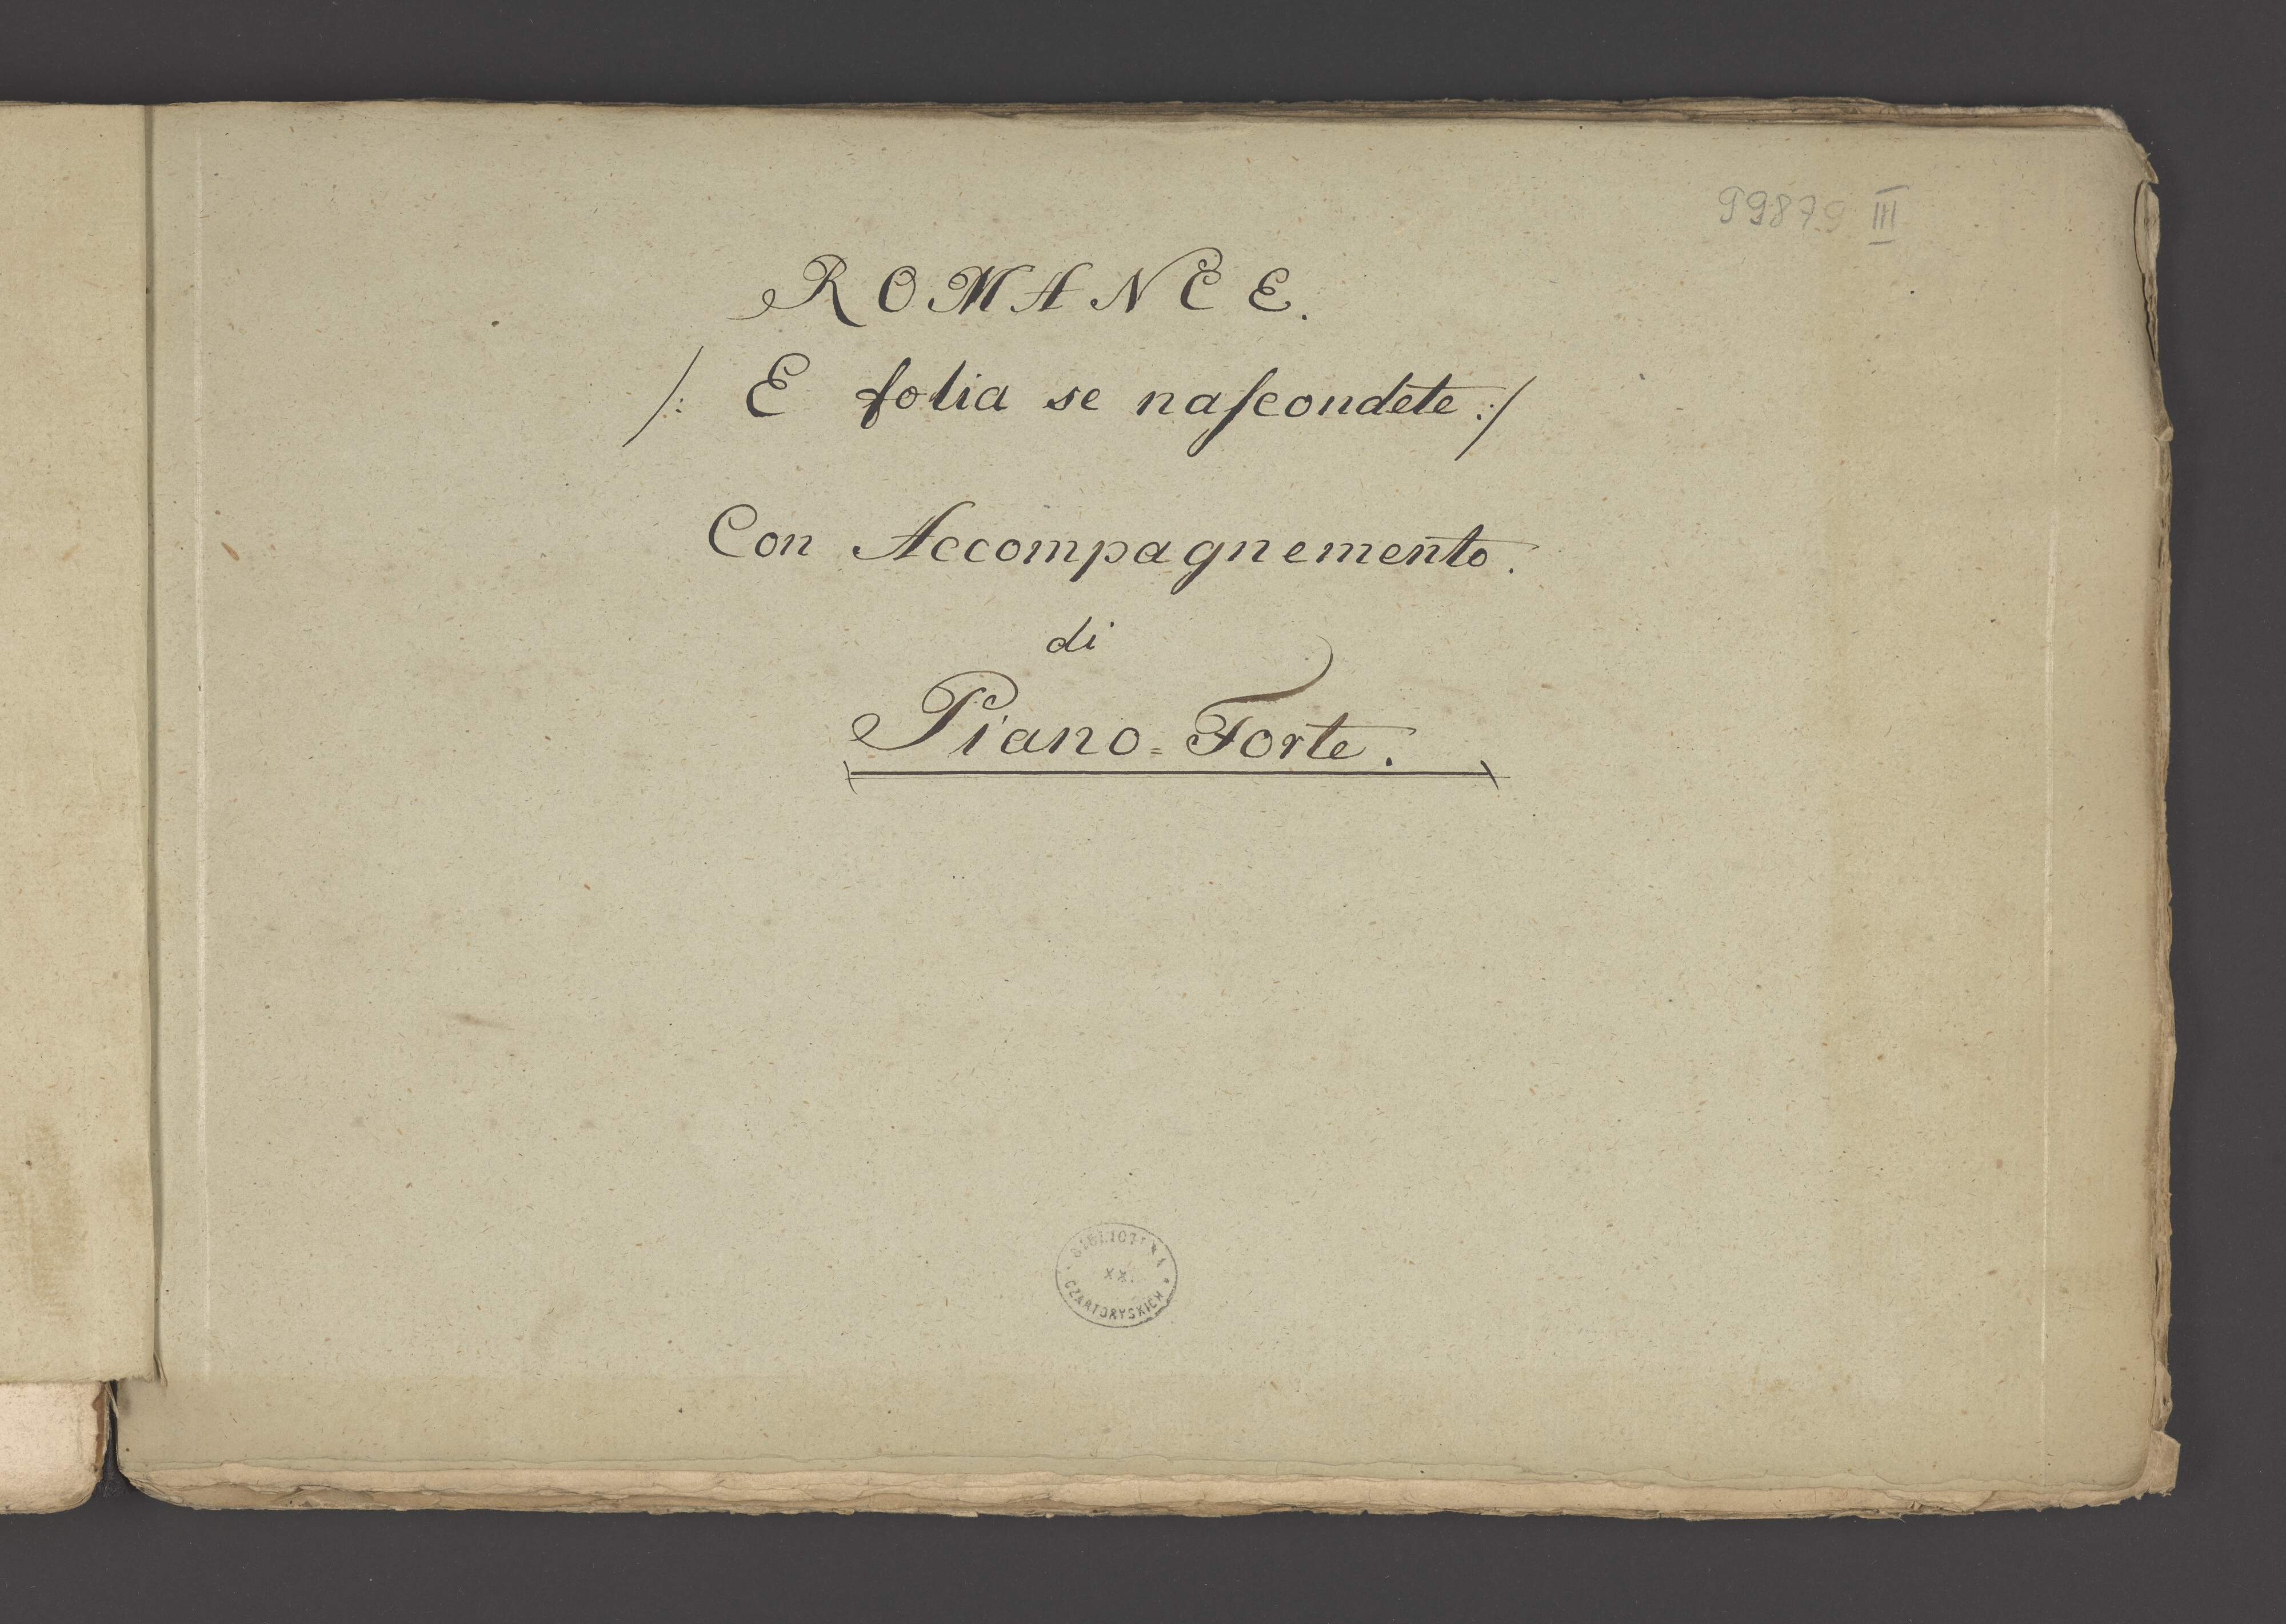 99879 III
ROMANCE.
/: E folia se naſcondete :/
Con Accompagnemento.
di
Piano=Forte.
BIBLIOTEKA
XX.
CZARTORYSKICH